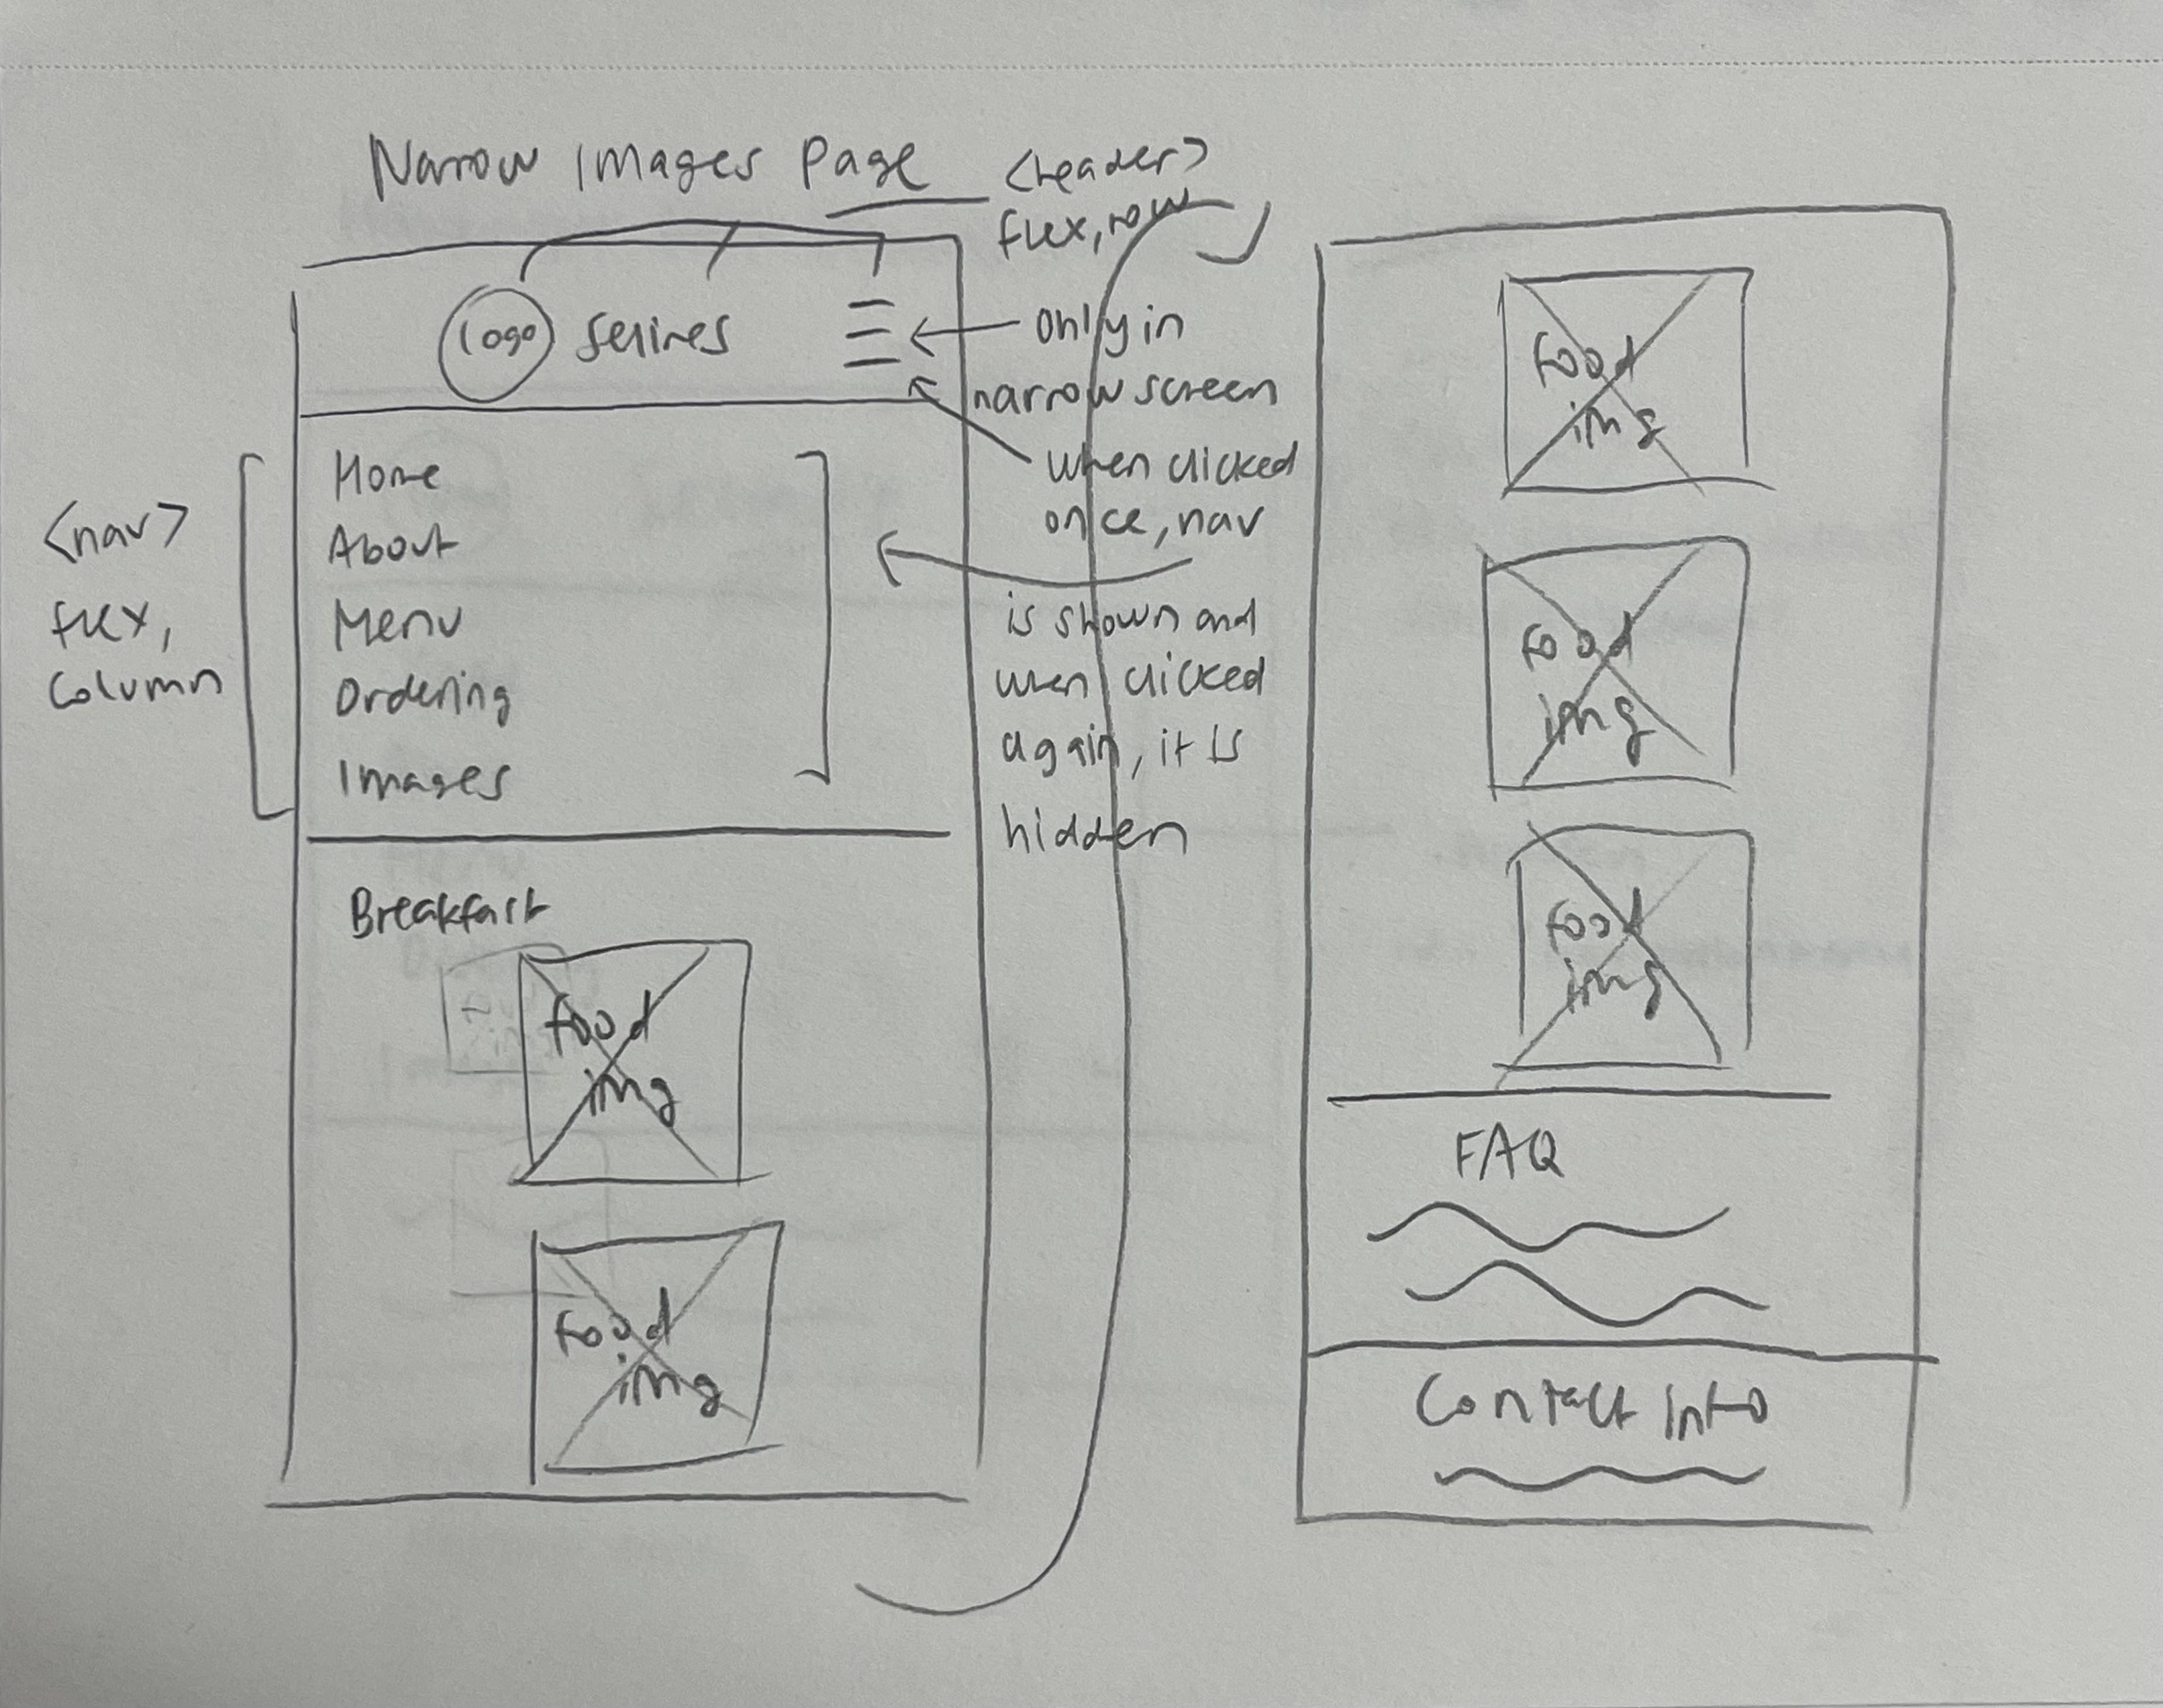 Narrow Images Page
<header>
flex, row
Logo
Selines
only in
narrow screen
when clicked
once, nav
is shown and
when clicked
again, it is
hidden
<nav>
flex,
column
Home
About
Menu
Ordering
Images
Breakfast
food
img
food
img
food
img
food
img
food
img
FAQ
Contact Info